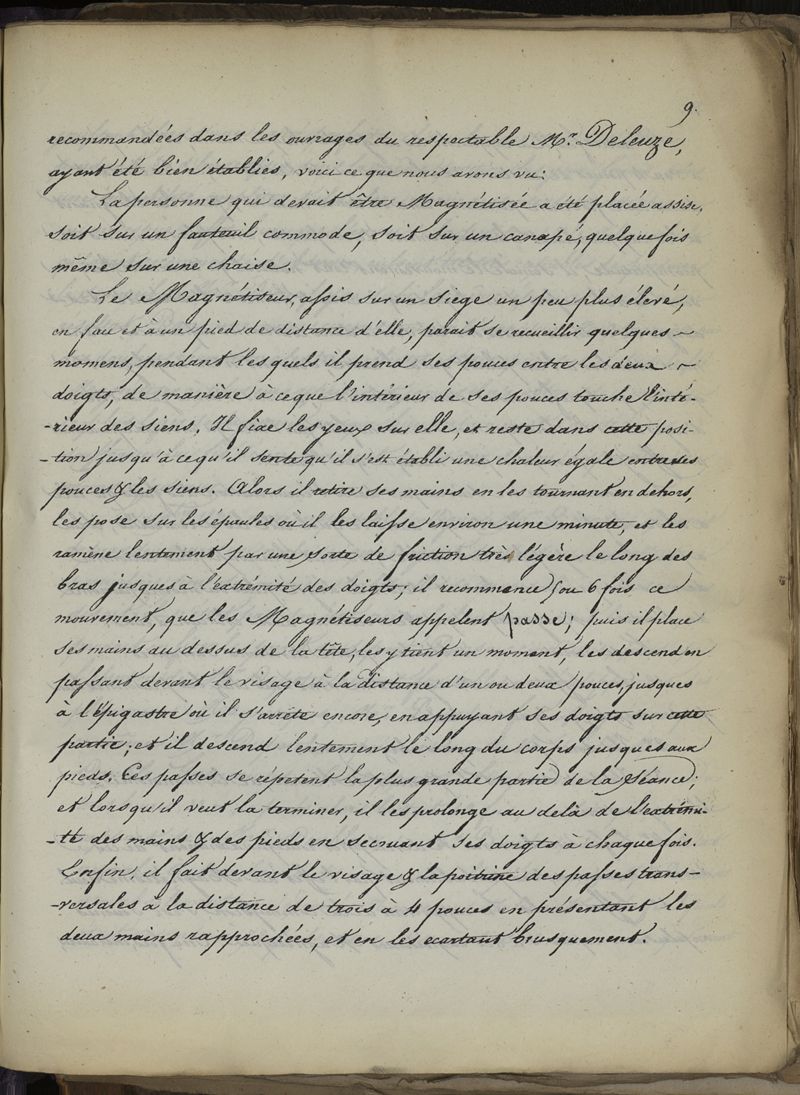 9.
recommandées dans les ouvrages du respectable Mr. Deleuze,
ayant été bien établies, voici ce que nous avons vu:
La personne qui devait être Magnétisée a été placée assise,
soit sur un fauteuil commode, soit sur un canapé, quelquefois
même sur une chaise.
Le Magnétiseur, assis sur un siege un peu plus élevé,
en face et à un pied de distance d'elle, parait se recueillir quelques
momens, pendant lesquels il prend ses pouces entre les deux
doigts, de manière à ce que l'intérieur de ses pouces touche l'inté-
-rieur des siens. Il fixe les yeux sur elle, et reste dans cette posi-
-tion jusqu'à ce qu'il sente qu'il s'est établi une chaleur égale entre ses
pouces & les siens. Alors il retire ses mains en les tournant en dehors,
les pose sur les épaules où il les laisse environ une minute, et les
ramène lentement par une sorte de friction très légère le long des
bras jusques à l'extrémité des doigts; il recommence 5 ou 6 fois ce
mouvement, que les Magnétiseurs appelent passe; puis il place
ses mains au dessus de la tête, les y tient un moment, les descend en
passant devant le visage à la distance d'un ou deux pouces, jusques
à l'épigastre où il s'arrête encore, en appuyant ses doigts sur cette
partie; et il descend lentement le long du corps jusques aux
pieds. Ces passes se répetent la plus grande partie de la séance;
et lorsqu'il veut la terminer, il les prolonge au delà de l'extrémi-
-té des mains & des pieds en secouant ses doigts à chaque fois.
Enfin, il fait devant le visage & la poitrine des passes trans-
-versales à la distance de trois à 4 pouces en présentant les
deux mains rapprochées, et en les ecartant brusquement.